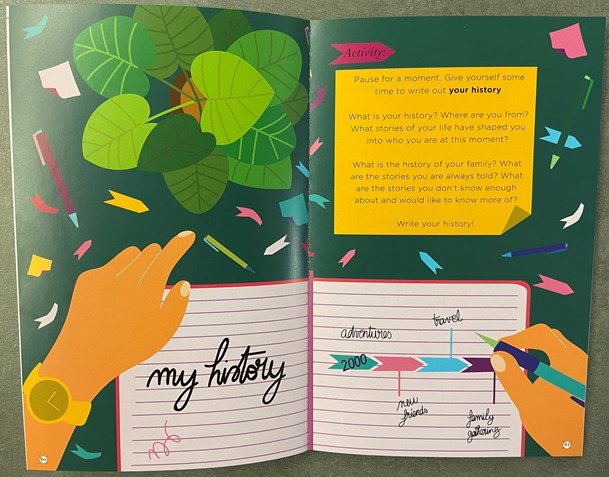 my history
Activity:
Pause for a moment. Give yourself some
time to write out your history.
What is your history? Where are you from?
What stories of your life have shaped you
into who you are at this moment?
What is the history of your family? What
are the stories you are always told? What
are the stories you don't know enough
about and would like to know more of?
Write your history!
adventures
travel
2000
new
friends
family
gathering